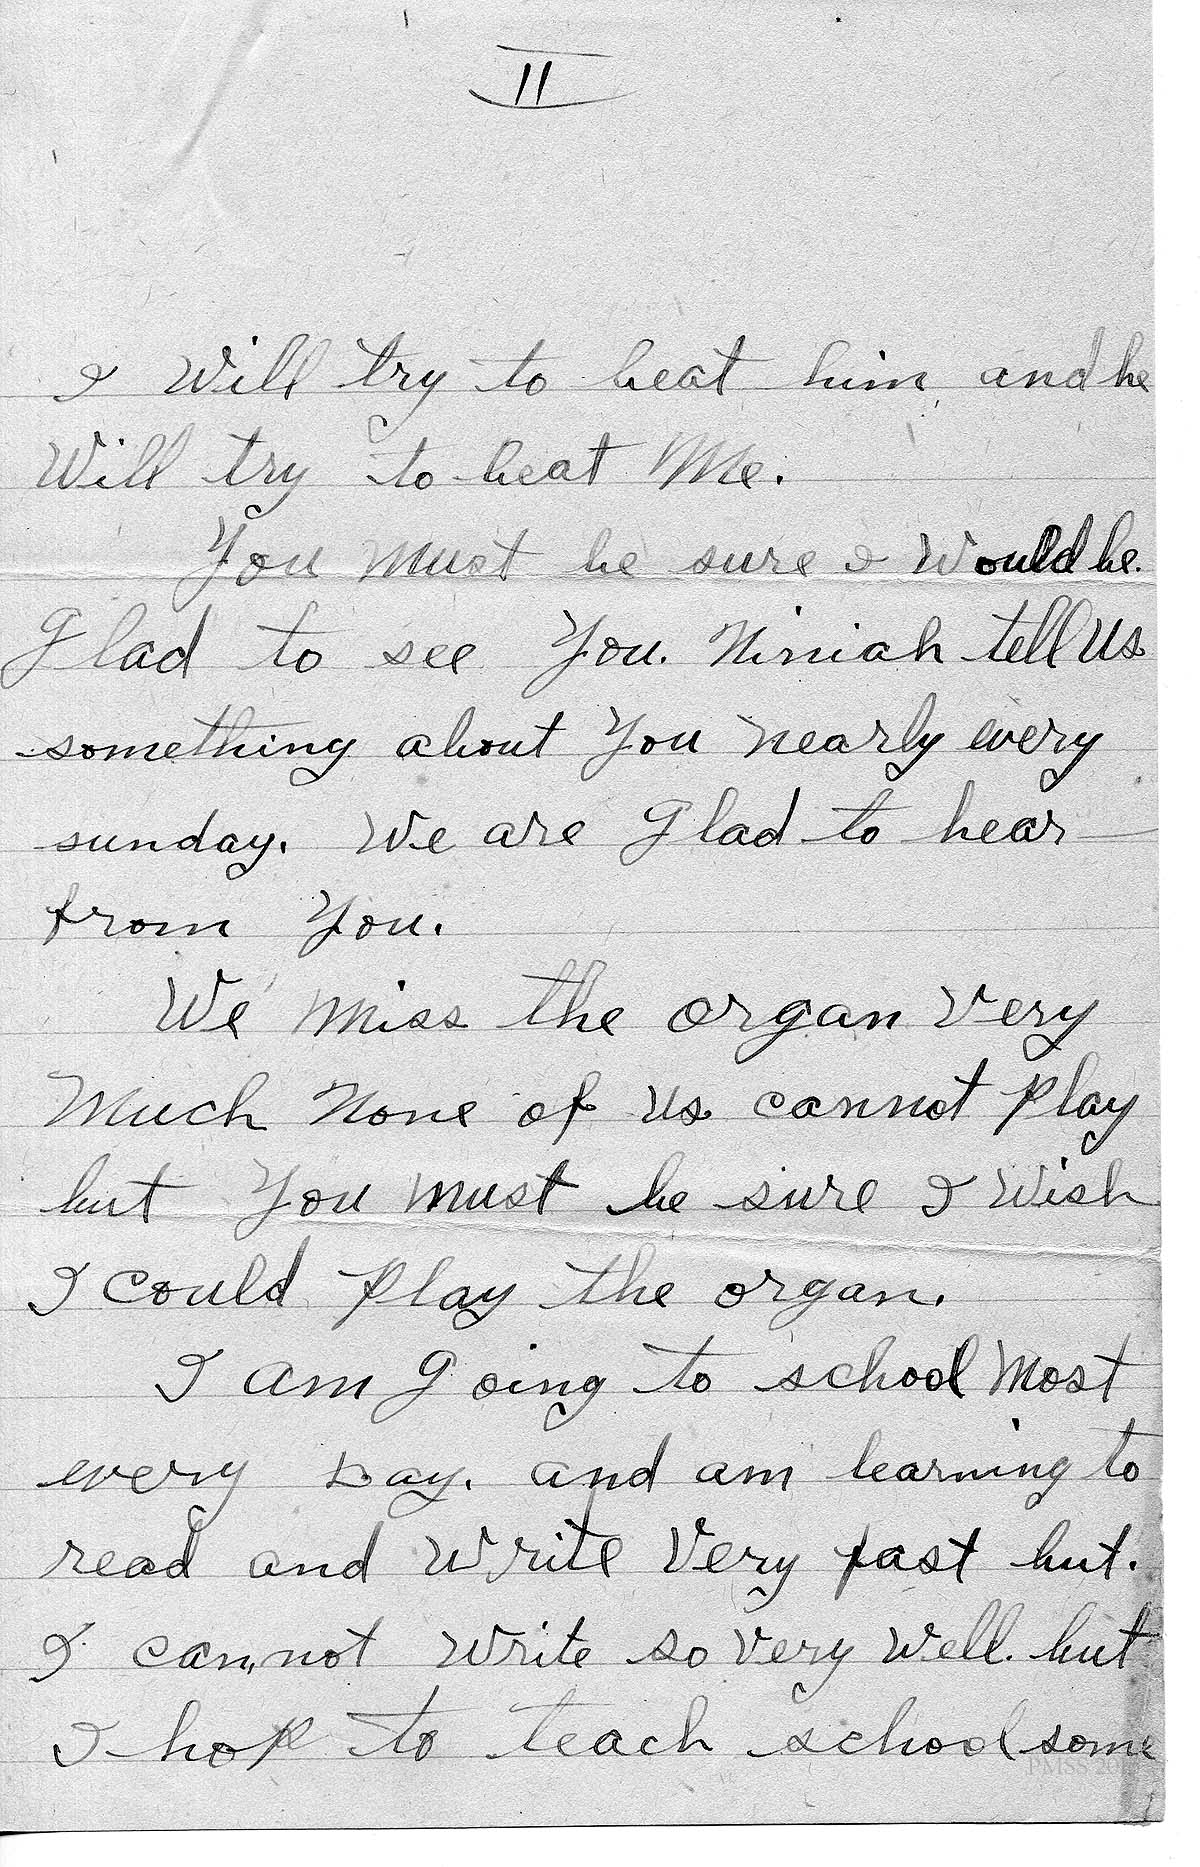 II
I Will try to beat him, and he
Will try to beat Me.
You Must be sure I Would be.
Glad to see You. Niniah tell Us
something about You Nearly every
sunday. We are Glad to hear
from You.
We Miss the organ Very
Much None of us cannot Play
but You must be sure I Wish
I could Play the organ.
I am Going to school Most
every Day. and am learning to
read and Write Very fast but.
I cannot Write so Very Well. but
I hop to teach school some
PMSS